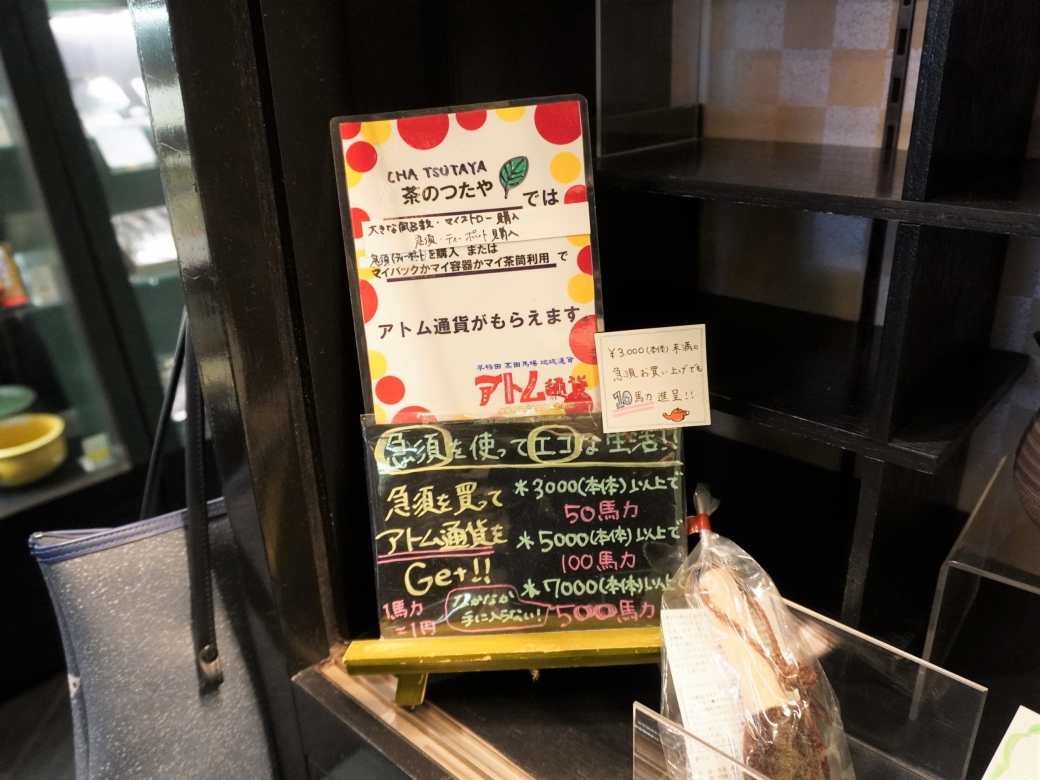 CHA TSUTAYA
茶のつたや
では
大きな風呂敷・マイストロー購入
急須・ティーポット購入
急須(ティーポット)を購入 または
マイバックかマイ容器かマイ茶筒利用 で
アトム通貨がもらえます
早稲田 高田馬場 地域通貨
アトム通貨
¥3,000(本体)未満の
急須お買い上げでも
10馬力進呈!!
急須を使ってエコな生活!!
急須を買って
アトム通貨を
Get!!
1馬力
=1円
なかなか
手に入らない!
*3000(本体)以上で
50馬力
*5000(本体)以上で
100馬力
*7000(本体)以上で
500馬力